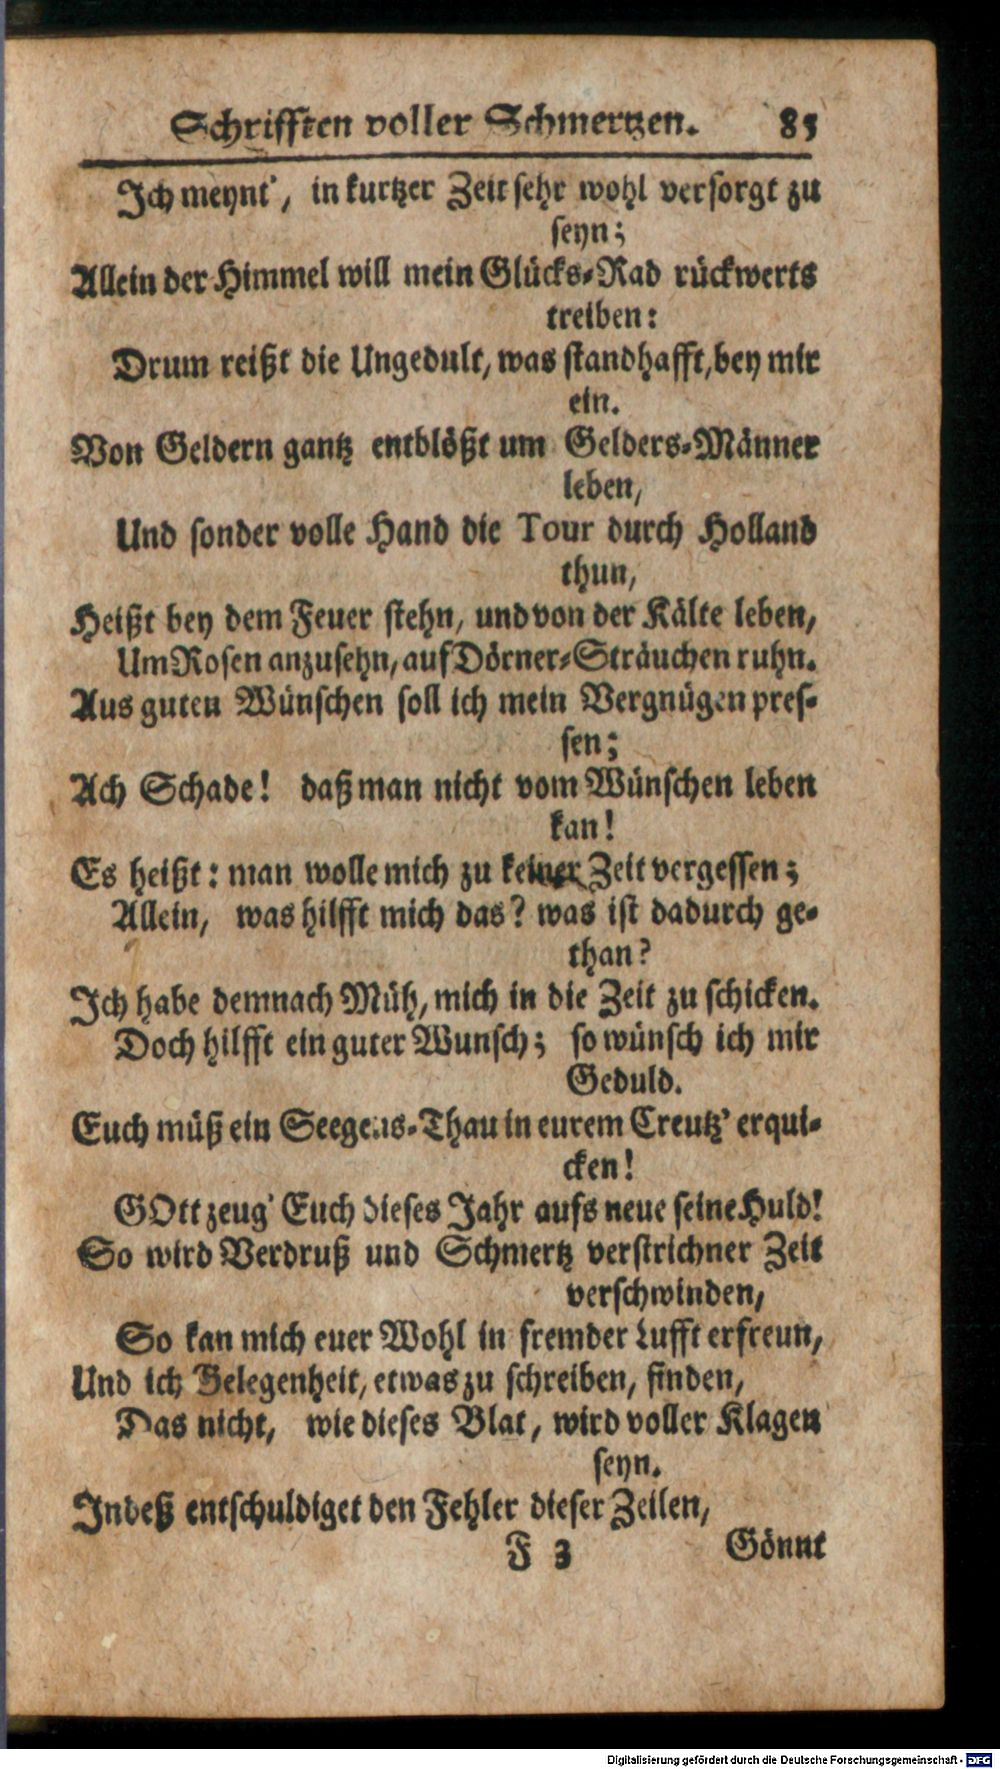 Schrifften voller Schmertzen. 85
Ich meynt', in kurtzer Zeit sehr wohl versorgt zu
seyn;
Allein der Himmel will mein Glücks-Rad rückwerts
treiben:
Drum reißt die Ungedult, was standhafft, bey mir
ein.
Von Geldern gantz entblößt um Gelders-Männer
leben,
Und sonder volle Hand die Tour durch Holland
thun,
Heißt bey dem Feuer stehn, und von der Kälte leben,
Um Rosen anzusehn, auf Dörner-Sträuchen ruhn.
Aus guten Wünschen soll ich mein Vergnügen pres-
sen;
Ach Schade! daß man nicht vom Wünschen leben
kan!
Es heißt: man wolle mich zu keiner Zeit vergessen;
Allein, was hilfft mich das? was ist dadurch ge-
than?
Ich habe demnach Müh, mich in die Zeit zu schicken.
Doch hilfft ein guter Wunsch; so wünsch ich mir
Geduld.
Euch müß ein Seegens-Thau in eurem Creutz' erqui-
cken!
GOtt zeug' Euch dieses Jahr aufs neue seine Huld!
So wird Verdruß und Schmertz verstrichner Zeit
verschwinden,
So kan mich euer Wohl in fremder Lufft erfreun,
Und ich Belegenheit, etwas zu schreiben, finden,
Das nicht, wie dieses Blat, wird voller Klagen
seyn.
Indeß entschuldiget den Fehler dieser Zeilen,
F 3 Gönnt
Digitalisierung gefördert durch die Deutsche Forschungsgemeinschaft - DFG